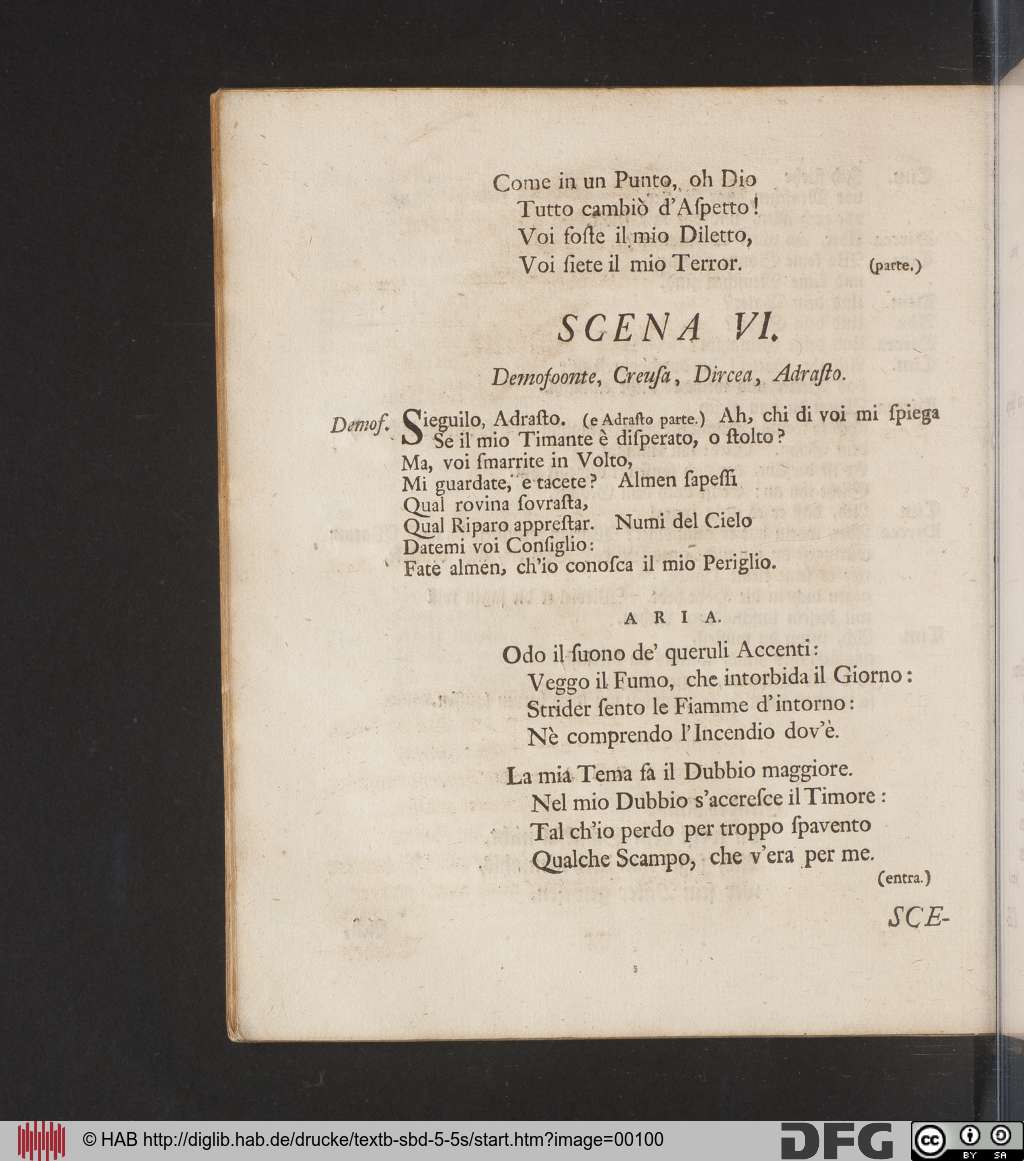 Come in un Punto, oh Dio
Tutto cambiò d'Aſpetto!
Voi foſte il mio Diletto,
Voi ſiete il mio Terror. (parte.)
SCENA VI.
Demofoonte, Creuſa, Dircea, Adraſto.
Demof. Sieguilo, Adraſto. (e Adraſto parte.) Ah, chi di voi mi ſpiega
Se il mio Timante è diſperato, o ſtolto?
Ma, voi ſmarrite in Volto,
Mi guardate, e tacete? Almen ſapeſſi
Qual rovina ſovraſta,
Qual Riparo appreſtar. Numi del Cielo
Datemi voi Conſiglio:
Fate almen, ch'io conoſca il mio Periglio.
ARIA.
Odo il ſuono de' queruli Accenti:
Veggo il Fumo, che intorbida il Giorno:
Strider ſento le Fiamme d'intorno:
Nè comprendo l'Incendio dov'è.
La mia Tema fa il Dubbio maggiore.
Nel mio Dubbio s'accreſce il Timore:
Tal ch'io perdo per troppo ſpavento
Qualche Scampo, che v'era per me.
(entra.)
SCE-
© HAB http://diglib.hab.de/drucke/textb-sbd-5-5s/start.htm?image=00100 DFG cc BY SA